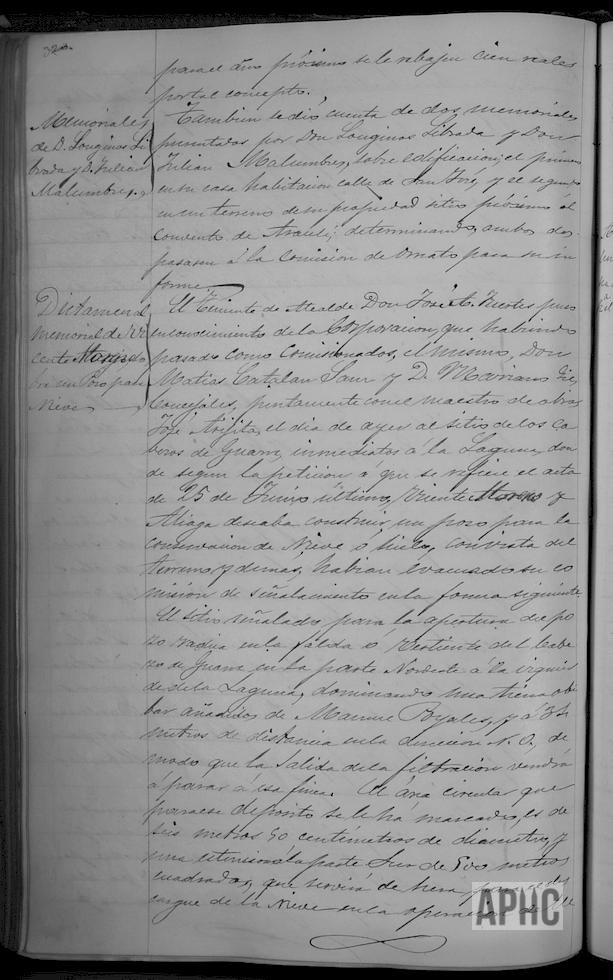 320.
para el año próximo se le rebajen cien reales
por tal concepto.
Memoriales
de D. Longinos Li
brada y D. Julian
Malumbres.
Tambien se dió cuenta de dos memoriales
presentados por Don Longinos Librada y Don
Julian Malumbres, sobre edificacion; el primero
en su casa habitacion calle de San José, y el segundo
en un terreno de su propiedad sitio próximo al
convento de Araceli; determinando, ambos dos
pasasen á la Comision de Ornato para su in
forme.
Dictamen al
memorial de Vi
cente Moreno so
bre un Pozo para
Nieve
El Teniente de Alcalde Don José A. Fuertes puso
en conocimiento de la Corporacion, que habiendo
pasado como Comisionados, el mismo, Don
Matias Catalan Sanz y D. Mariano
Concejales, juntamente con el maestro de obras
José Arjita, el dia de ayer al sitio de los Ca
bezos de Guam, inmediatos á la Laguna, don
de segun la peticion a que se refiere el acta
de 25 de Junio último, Vicente Moreno y
Aliaga deseaba construir un pozo para la
conservacion de Nieve ó hielo, con vista del
terreno y demas, habian evacuado su co
mision de señalamiento en la forma siguiente.
El sitio señalado para la apertura de po
zo radica en la falda ó vertiente del Cabe
zo de Guam en la parte Nordeste á la izquier
da de la Laguna, dominando una tierra oli
bar añadidos de Manuel Royales, y á 34
metros de distancia en la direccion N. O. de
modo que la salida de la filtracion vendrá
á parar á esa finca. El área circular que
para ese deposito se le há marcado, es de
seis metros 50 centímetros de diametro, y
una estension á la parte Sur de 500 metros
cuadrados, que servirá de hera para el des
cargue de la Nieve en la operacion de
APHC